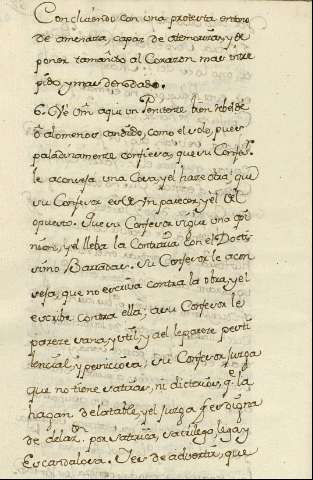 Concluiendo con una protesta en tono
de amenaza, capaz de atemorizar, y de
poner tamañito al Corazon mas intre
pido y mas denodado.
6. Ve Vm aqui un Penitente bien debil de
ô alomenos candido, como el solo, pues
paladinamente confiesa, que su Confesr.
le aconseja una Cosa, y el hace otra: que
su Confesor es de un parecer, y el del
opuesto. Que su Confesor sigue una opi
nion, y el lleba la Contraria con el Doctis
simo Barradas. Su Confesor le acon
seja, que no escriva contra la obra, y el
escribe contra ella; a su Confesor le
parece sana, y util, y a el le parece pesti
lencial, y perniciosa; su Confesor juzga
que no tiene satiras, ni dictarios, qe. la
hagan delatable, y el juzga ser digna
de delazon. por satirica, sacrilega, y
Escandalosa. Es de advertir, que